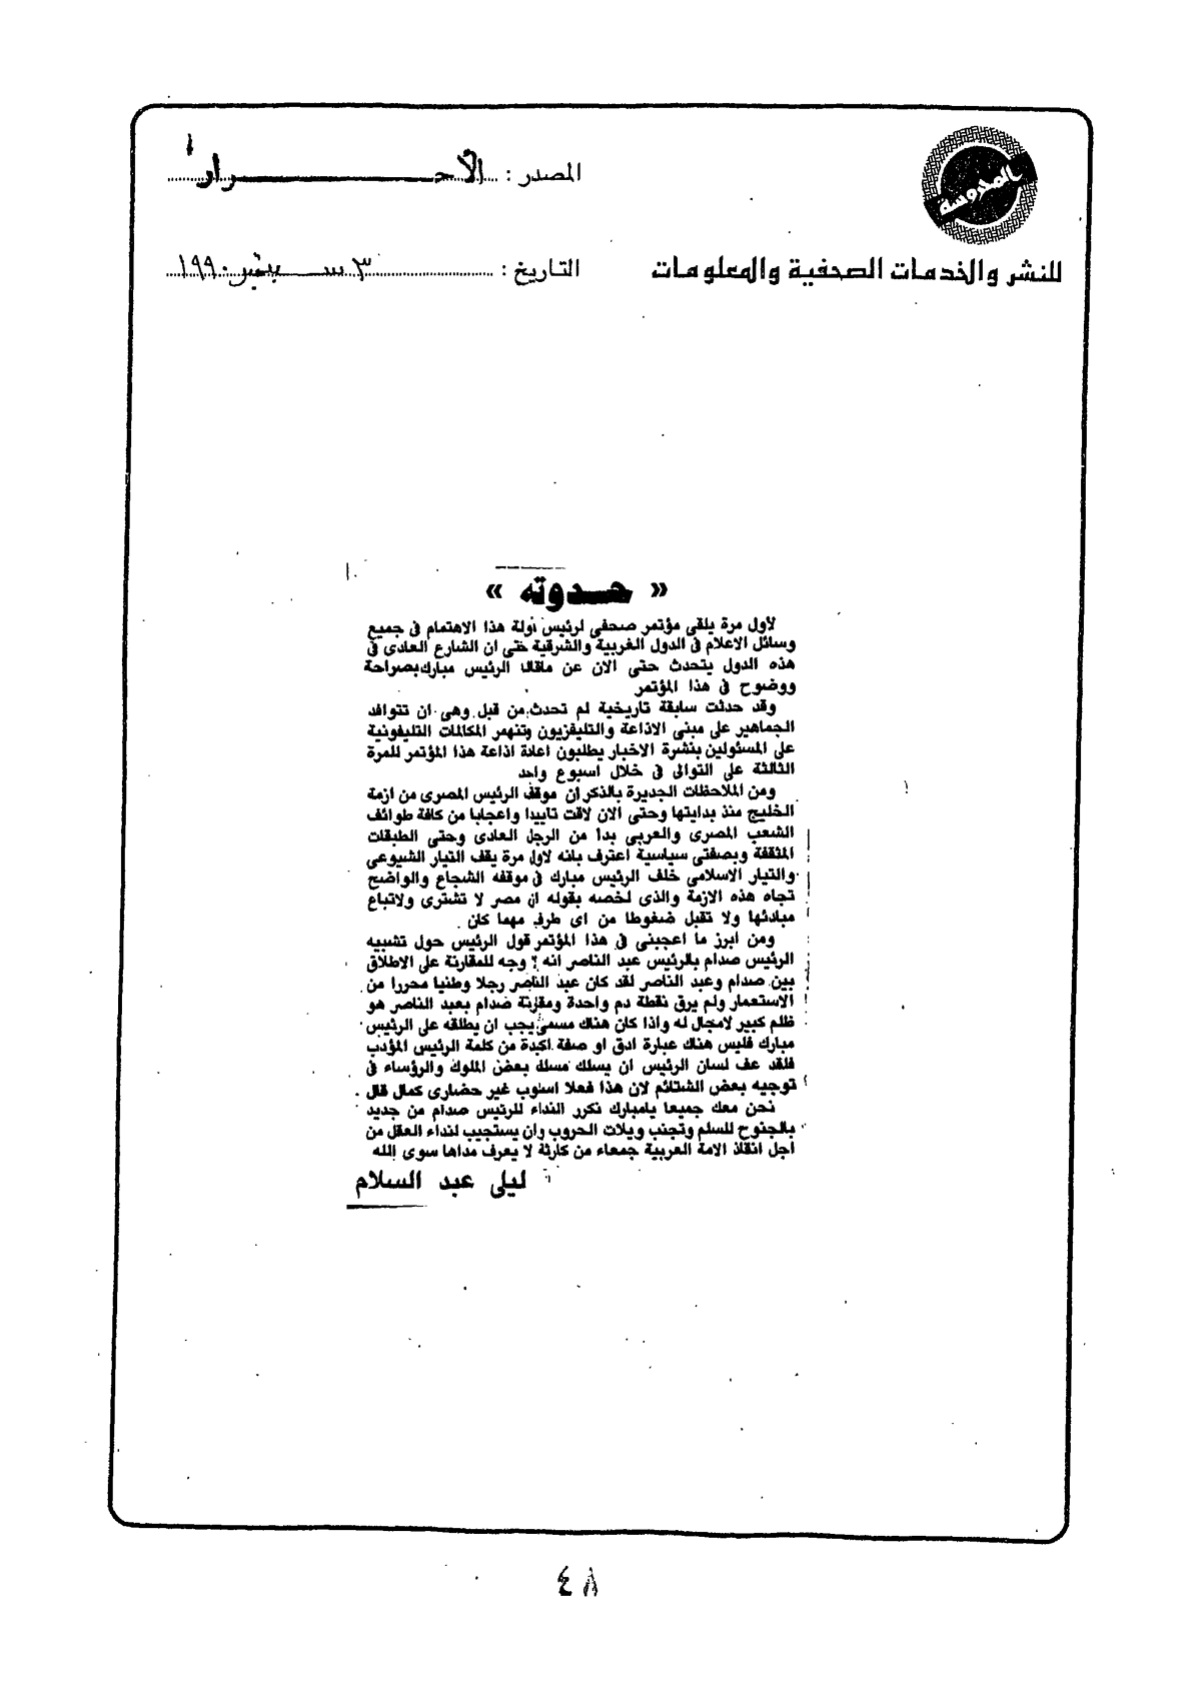 المحروسة
المصدر : الأحرار
للنشر والخدمات الصحفية والمعلومات
التاريخ : ٣ سبتمبر ١٩٩٠
« حدوته »
لاول مرة يلقى مؤتمر صحفى لرئيس دولة هذا الاهتمام فى جميع
وسائل الاعلام فى الدول الغربية والشرقية حتى ان الشارع العادى فى
هذه الدول يتحدث حتى الان عن ماقاله الرئيس مبارك بصراحة
ووضوح فى هذا المؤتمر
وقد حدثت سابقة تاريخية لم تحدث من قبل وهى ان تتوافد
الجماهير على مبنى الاذاعة والتليفزيون وتنهمر المكالمات التليفونية
على المسئولين بنشرة الاخبار يطلبون اعادة اذاعة هذا المؤتمر للمرة
الثالثة على التوالى فى خلال اسبوع واحد
ومن الملاحظات الجديرة بالذكر ان موقف الرئيس المصرى من ازمة
الخليج منذ بدايتها وحتى الان لاقت تاييدا واعجابا من كافة طوائف
الشعب المصرى والعربى بدا من الرجل العادى وحتى الطبقات
المثقفة وبصفتى سياسية اعترف بانه لاول مرة يقف التيار الشيوعى
والتيار الاسلامى خلف الرئيس مبارك فى موقفه الشجاع والواضح
تجاه هذه الازمة والذى لخصه بقوله ان مصر لا تشترى ولاتباع
مبادئها ولا تقبل ضغوطا من اى طرف مهما كان .
ومن ابرز ما اعجبنى فى هذا المؤتمر قول الرئيس حول تشبيه
الرئيس صدام بالرئيس عبد الناصر انه ؟ وجه للمقارنة على الاطلاق
بين صدام وعبد الناصر لقد كان عبد الناصر رجلا وطنيا محررا من
الاستعمار ولم يرق نقطة دم واحدة ومقارنة صدام بعبد الناصر هو
ظلم كبير لامجال له واذا كان هناك مسمى يجب ان يطلقه على الرئيس
مبارك فليس هناك عبارة ادق او صفة اكيدة من كلمة الرئيس المؤدب
فلقد عف لسان الرئيس ان يسلك مسلك بعض الملوك والرؤساء فى
توجيه بعض الشتائم لان هذا فعلا اسلوب غير حضارى كمال قال .
نحن معك جميعا يامبارك نكرر النداء للرئيس صدام من جديد
بالجنوح للسلم وتجنب ويلات الحروب وان يستجيب لنداء العقل من
اجل انقاذ الامة العربية جمعاء من كارثة لا يعرف مداها سوى الله
ليلى عبد السلام
٤٨